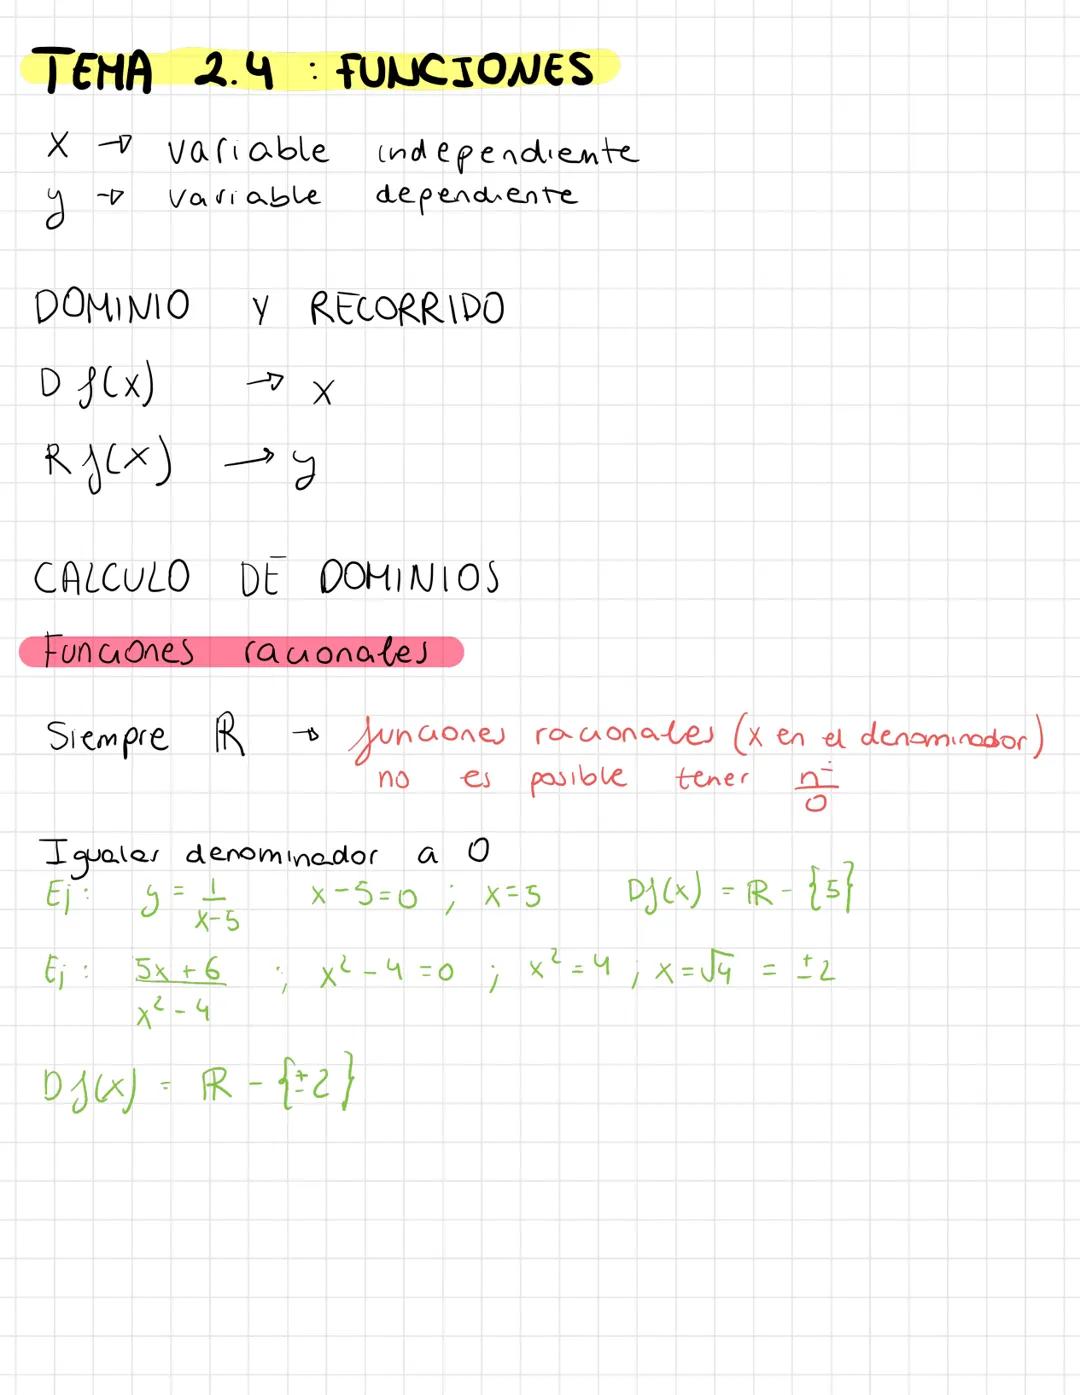 TEMA 2.4 : FUNCIONES
X → variable independiente
y → variable dependiente
DOMINIO Y RECORRIDO
D f(x) → x
R f(x) → y
CALCULO DE DOMINIOS
Funciones racionales
Siempre ℝ → funciones racionales (x en el denominador)
no es posible tener nº/0
Igualar denominador a 0
Ej: y = 1/(x-5) x-5=0 ; x=5 Df(x) = ℝ - {5}
Ej: (5x+6)/(x²-4) ; x²-4=0 ; x²=4 ; x=√4 = ±2
Df(x) = ℝ - {±2}